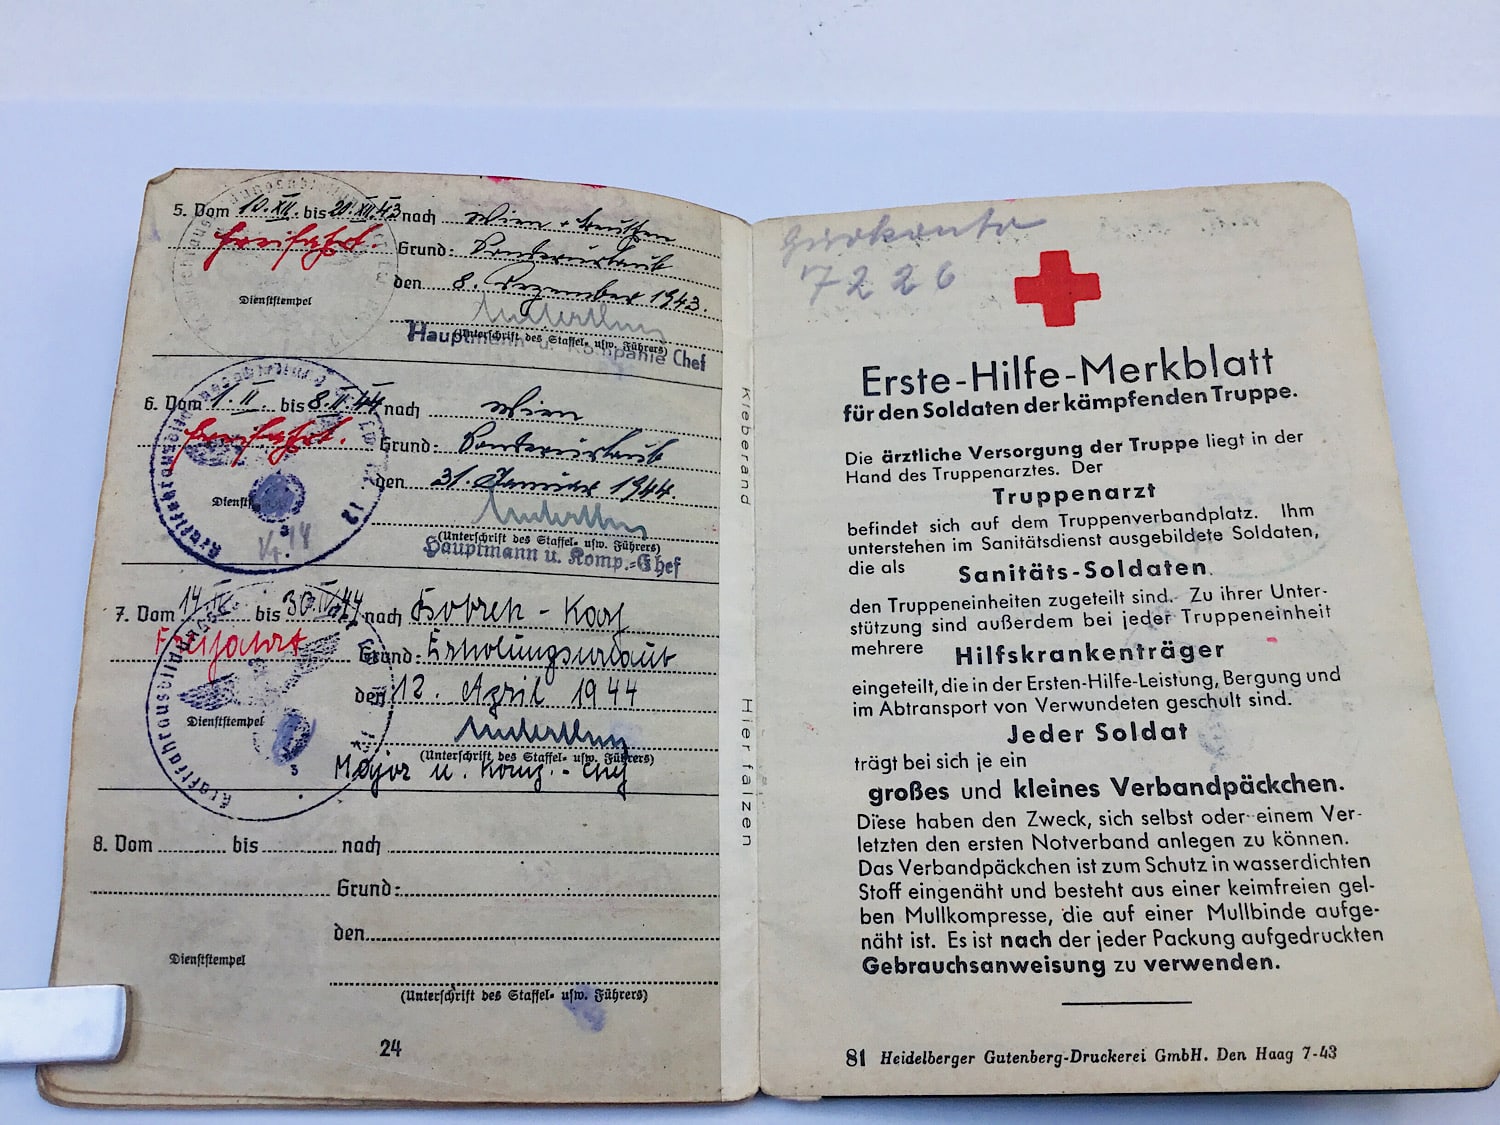 5. Vom 10.XII. bis 21.XII.43 nach Wien +
Freifahrt. Grund: Sonderurlaub
den 8. Dezember 1943.
Dienststempel
(Unterschrift des Staffel- usw. Führers)
Hauptmann u. Kompanie Chef
6. Vom 1.II. bis 8.II.44 nach Wien
Freifahrt. Grund: Sonderurlaub
den 31. Januar 1944.
Dienstst
(Unterschrift des Staffel- usw. Führers)
Hauptmann u. Komp.-Chef
7. Vom 14.IV. bis 30.IV.44 nach
Freifahrt Grund: Erholungsurlaub
den 12. April 1944
Dienststempel
(Unterschrift des Staffel- usw. Führers)
Major u. Komp.-Chef
8. Vom bis nach
Grund:
den
Dienststempel
(Unterschrift des Staffel- usw. Führers)
24
Kleberand
Hier falzen
Girokonto
7226
Erste-Hilfe-Merkblatt
für den Soldaten der kämpfenden Truppe.
Die ärztliche Versorgung der Truppe liegt in der
Hand des Truppenarztes. Der
Truppenarzt
befindet sich auf dem Truppenverbandplatz. Ihm
unterstehen im Sanitätsdienst ausgebildete Soldaten,
die als Sanitäts-Soldaten
den Truppeneinheiten zugeteilt sind. Zu ihrer Unter-
stützung sind außerdem bei jeder Truppeneinheit
mehrere Hilfskrankenträger
eingeteilt, die in der Ersten-Hilfe-Leistung, Bergung und
im Abtransport von Verwundeten geschult sind.
Jeder Soldat
trägt bei sich je ein
großes und kleines Verbandpäckchen.
Diese haben den Zweck, sich selbst oder einem Ver-
letzten den ersten Notverband anlegen zu können.
Das Verbandpäckchen ist zum Schutz in wasserdichten
Stoff eingenäht und besteht aus einer keimfreien gel-
ben Mullkompresse, die auf einer Mullbinde aufge-
näht ist. Es ist nach der jeder Packung aufgedruckten
Gebrauchsanweisung zu verwenden.
81 Heidelberger Gutenberg-Druckerei GmbH. Den Haag 7-43